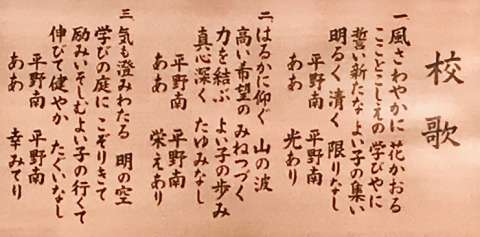 校歌
一、風さわやかに 花かおる
こことこしえの 学びやに
誓い新たな よい子の集い
明るく 清く 限りなし
平野南 平野南
ああ 光あり
二、はるかに仰ぐ 山の波
高い希望の みねつづく
力を結ぶ よい子の歩み
真心深く たゆみなし
平野南 平野南
ああ 栄えあり
三、気も澄みわたる 明の空
学びの庭に こぞりきて
励みいそしむ よい子の行くて
伸びて健やか たぐいなし
平野南 平野南
ああ 幸みてり